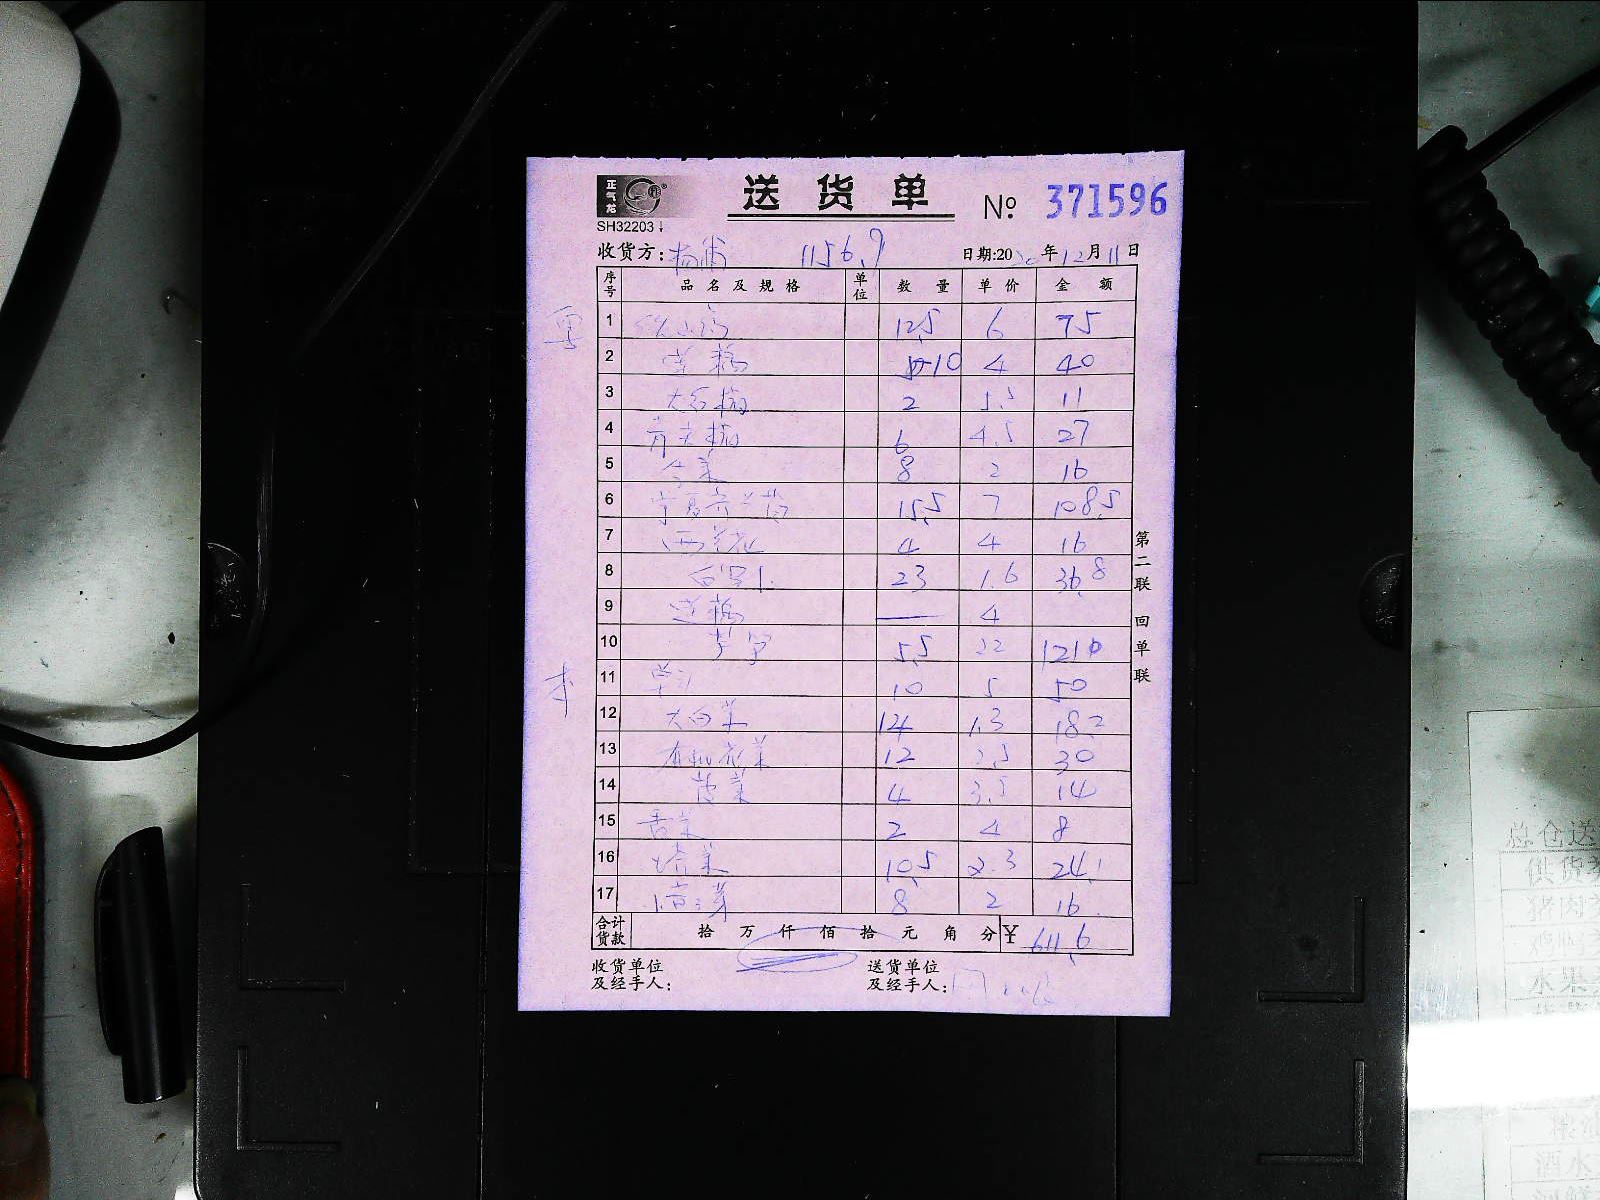 正气龙
送货单 № 371596
SH32203
收货方: 杨浦 1156.9 日期:2020年12月11日
序号 品名及规格 单位 数量 单价 金额
1 12.5 6 75
2 莲藕 10 4 40
3 2 5.5 11
4 6 4.5 27
5 生菜 8 2 16
6 宁夏芥兰苗 15.5 7 108.5
7 西兰花 4 4 16
8 白罗卜 23 1.6 36.8
9 莲藕 — 4
10 芦笋 5.5 22 121.0
11 10 5 50
12 大白菜 14 1.3 18.2
13 有机花菜 12 2.5 30
14 菠菜 4 3.5 14
15 香菜 2 4 8
16 塔菜 10.5 2.3 24.1
17 8 2 16
合计货款 拾 万 仟 佰 拾 元 角 分 ¥ 611.6
收货单位及经手人:
送货单位及经手人:
第二联 回单联
总仓送
供货
猪肉
水果
酒水